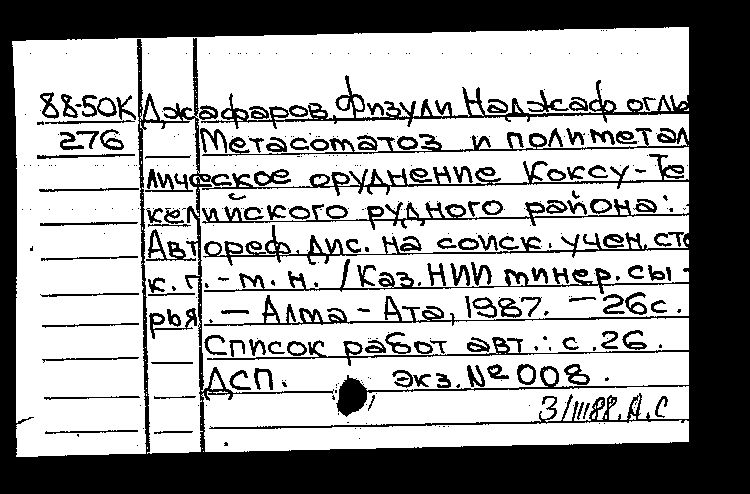 88-50К Джафаров, Физули Наджаф оглы
276 Метасоматоз и полиметал
лическое оруднение Коксу-Те
келийского рудного района:
Автореф. дис. на соиск. учен. сте
к. г. - м. н. / Каз. НИИ минер. сы -
рья. — Алма - Ата, 1987. — 26с.
Список работ авт.: с. 26.
ДСП. экз. № 008.
3/III88. А.С